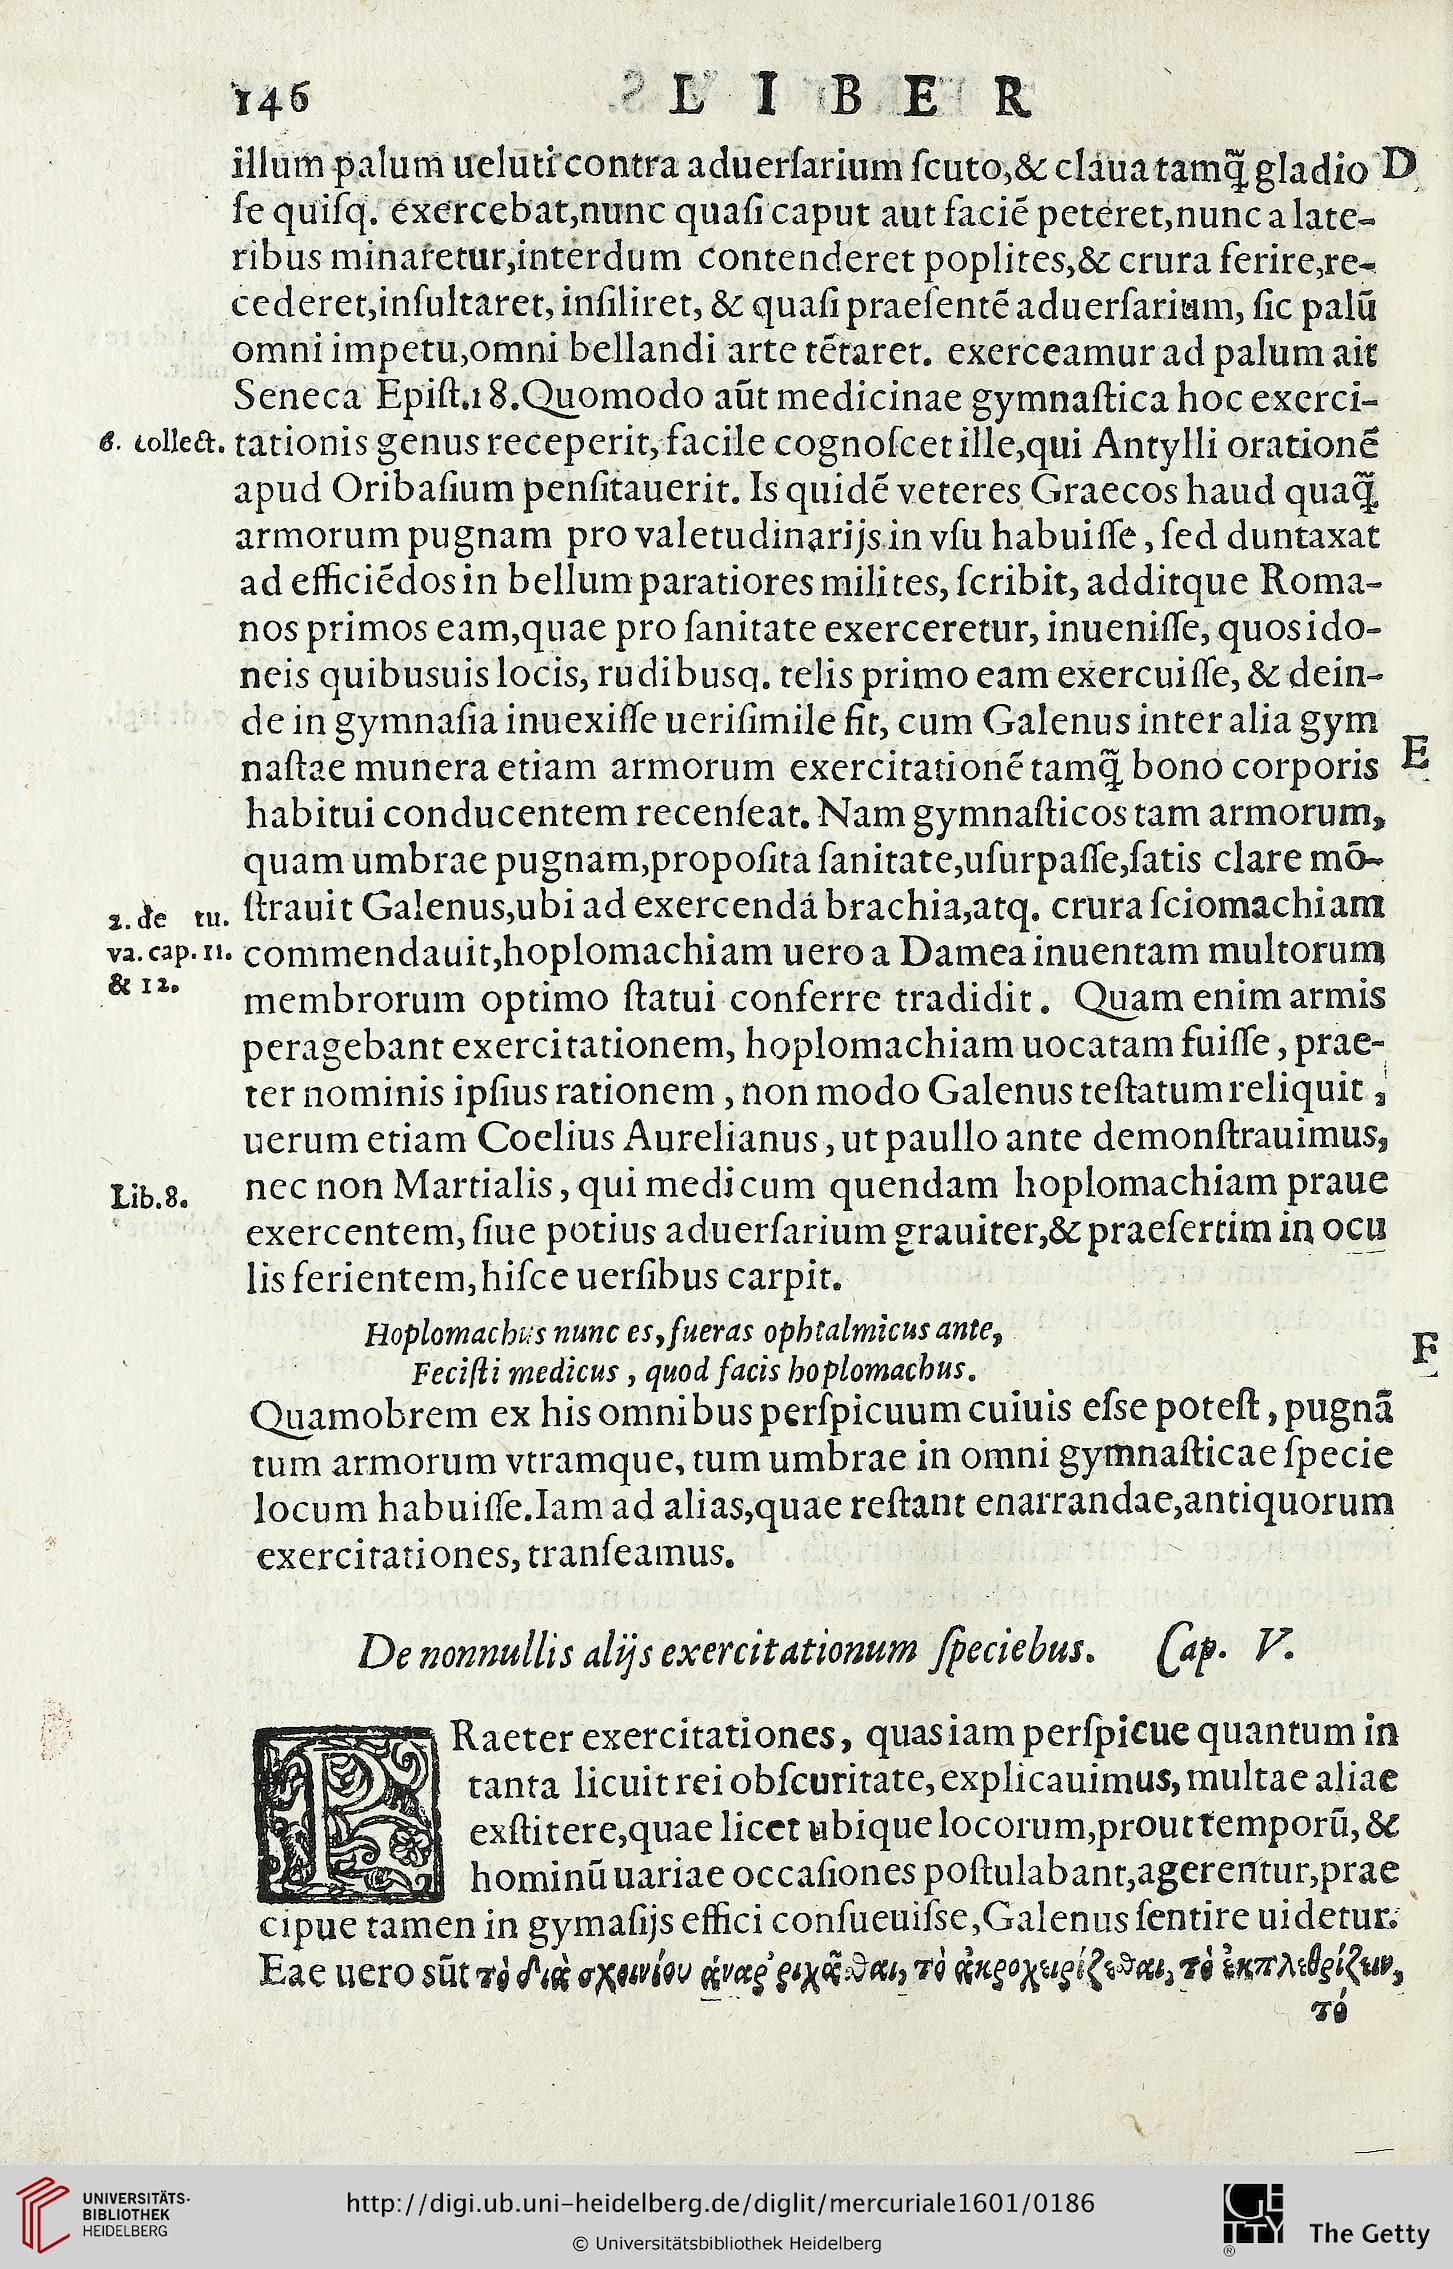 146 LIBER
illum palum ueluti contra aduerſarium ſcuto,& claua tamq̃ gladio D
ſe quiſq. exercebat,nunc quaſi caput aut faciē peteret,nunc a late-
ribus minaretur,interdum contenderet poplites,& crura ferire,re-
cederet,inſultaret, inſiliret, & quaſi praeſentē aduerſarium, ſic palū
omni impetu,omni bellandi arte tētaret. exerceamur ad palum ait
Seneca Epiſt.18.Quomodo aūt medicinae gymnaſtica hoc exerci-
6. collect. tationis genus receperit, facile cognoſcet ille,qui Antylli orationē
apud Oribaſium penſitauerit. Is quidē veteres Graecos haud quaq̃
armorum pugnam pro valetudinarijs in vſu habuiſſe, ſed duntaxat
ad efficiēdos in bellum paratiores milites, ſcribit, additque Roma-
nos primos eam,quae pro ſanitate exerceretur, inueniſſe, quos ido-
neis quibusuis locis, rudibusq. telis primo eam exercuiſſe, & dein-
de in gymnaſia inuexiſſe ueriſimile fit, cum Galenus inter alia gym
naſtae munera etiam armorum exercitationē tamq̃ bono corporis E
habitui conducentem recenſeat. Nam gymnaſticos tam armorum,
quam umbrae pugnam,propoſita ſanitate,uſurpaſſe,ſatis clare mō-
2. de tu. ſtrauit Galenus,ubi ad exercendá brachia,atq. crura ſciomachiam
va. cap. 11. commendauit,hoplomachiam uero a Damea inuentam multorum
& 12. membrorum optimo ſtatui conferre tradidit. Quam enim armis
peragebant exercitationem, hoplomachiam uocatam fuiſſe, prae-
ter nominis ipſius rationem, non modo Galenus teſtatum reliquit,
uerum etiam Coelius Aurelianus, ut paullo ante demonſtrauimus,
Lib.8. nec non Martialis, qui medicum quendam hoplomachiam praue
exercentem, ſiue potius aduerſarium grauiter,& praeſertim in ocu
lis ferientem, hiſce uerſibus carpit.
Hoplomachus nunc es, fueras ophtalmicus ante,
Feciſti medicus, quod facis hoplomachus. F
Quamobrem ex his omnibus perſpicuum cuiuis eſse poteſt, pugnā
tum armorum vtramque, tum umbrae in omni gymnaſticae ſpecie
locum habuiſſe.Iam ad alias,quae reſtant enarrandae,antiquorum
exercitationes, tranſeamus.
De nonnullis alijs exercitationum ſpeciebus. Cap. V.
PRaeter exercitationes, quas iam perſpicue quantum in
tanta licuit rei obſcuritate, explicauimus, multae aliae
exſtitere,quae licet ubique locorum,prout temporū, &
hominū uariae occaſiones poſtulabant,agerentur,prae
cipue tamen in gymaſijs effici conſueuiſse,Galenus ſentire uidetur.
Eae uero sūt τὸ διὰ σχοινίου ἀναῤῥιχᾶσθαι, τὸ ἀκροχειρίζεσθαι, τὸ ἐκπλεθρίζειν,
τό
UNIVERSITÄTS-
BIBLIOTHEK
HEIDELBERG
http://digi.ub.uni-heidelberg.de/diglit/mercuriale1601/0186
© Universitätsbibliothek Heidelberg
GETTY
® The Getty